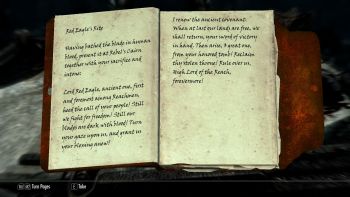 Red Eagle's Rite
Having bathed the blade in human
blood, present it at Rebel's Cairn
together with your sacrifice and
intone:
Lord Red Eagle, ancient one, first
and foremost among Reachmen,
heed the call of your people! Still
we fight for freedom! Still our
blades are dark with blood! Turn
your gaze upon us, and grant us
your blessing anew!
I renew the ancient covenant.
When at last our lands are free, we
shall return, your sword of victory
in hand. Then arise, O great one,
from your honored tomb! Reclaim
thy stolen throne! Rule over us,
High Lord of the Reach,
forevermore!
Turn Pages
E Take